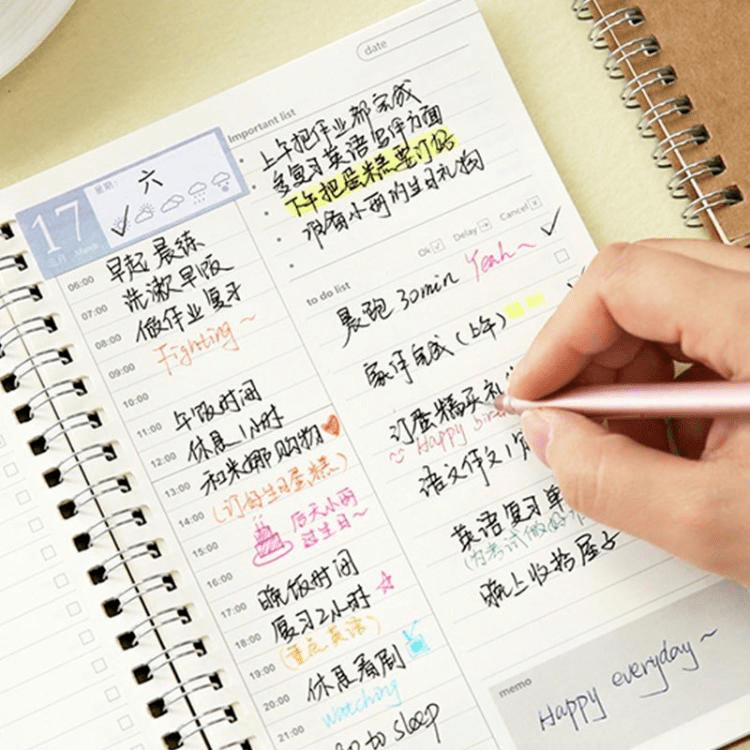 date
Important list
上午把作业都完成
多复习英语写作方面
下午把蛋糕要订好
准备小雨的生日礼物
Ok Delay Cancel
to do list
晨跑30min Yeah~
完成(上午)
订蛋糕买礼
Happy
语文作文1
英语复习单
(为考试做好
晚上收拾屋子
memo
Happy everyday~
17
星期: 六
06:00 早起 晨练
07:00 洗漱早饭
08:00 做作业复习
09:00 Fighting~
10:00
11:00 午饭时间
12:00 休息1小时
13:00 和米娜购物
14:00 (订好生日蛋糕)
15:00 后天小雨
过生日~
16:00
17:00 晚饭时间
18:00 复习2小时
(重点英语)
19:00
20:00 休息看剧
21:00 watching
to sleep